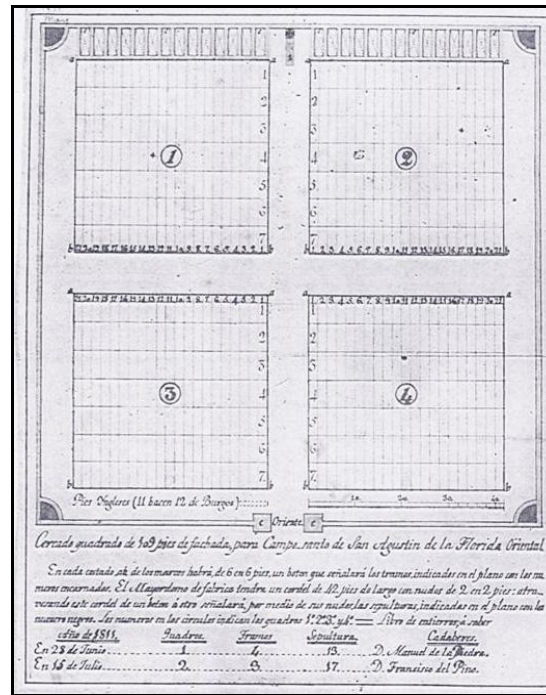 a a a a
1 1
2 2
3 3
1 4 4 2
5 5
6 6
7 7
b 21 20 19 18 17 16 15 14 13 12 11 10 9 8 7 6 5 4 3 2 1 b b 1 2 3 4 5 6 7 8 9 10 11 12 13 14 15 16 17 18 19 20 21 b
a 21 20 19 18 17 16 15 14 13 12 11 10 9 8 7 6 5 4 3 2 1 a a 1 2 3 4 5 6 7 8 9 10 11 12 13 14 15 16 17 18 19 20 21 a
1 1
2 2
3 3
3 4 4 4
5 5
6 6
7 7
b b b b
Pies Yngleses (11 hacen 12 de Burgos) 10. 20. 30. 40.
c Oriente c
Cercado quadrado de 109 pies de fachada, para Campo santo de San Agustin de la Florida Oriental
En cada costado ab de los marcos habrá, de 6 en 6 pies, un boton que señalará los tramos, indicados en el plano con los nu
meros encarnados. El Mayordomo de fabrica tendra un cordel de 42 pies de largo con nudos de 2 en 2 pies: atra-
vesando este cordel de un boton á otro señalará, por medio de sus nudos, las sepulturas, indicadas en el plano con los
numeros negros. Los numeros en los circulos indican los quadros 1º 2º 3º y 4º = Libro de entierros, á saber
Año de 1811. Quadros. Tramos Sepultura. Cadaberes.
En 28 de Junio 1. 4. 13. D. Manuel de la Piedra.
En 15 de Julio. 2. 3. 17. D. Francisco del Pino.